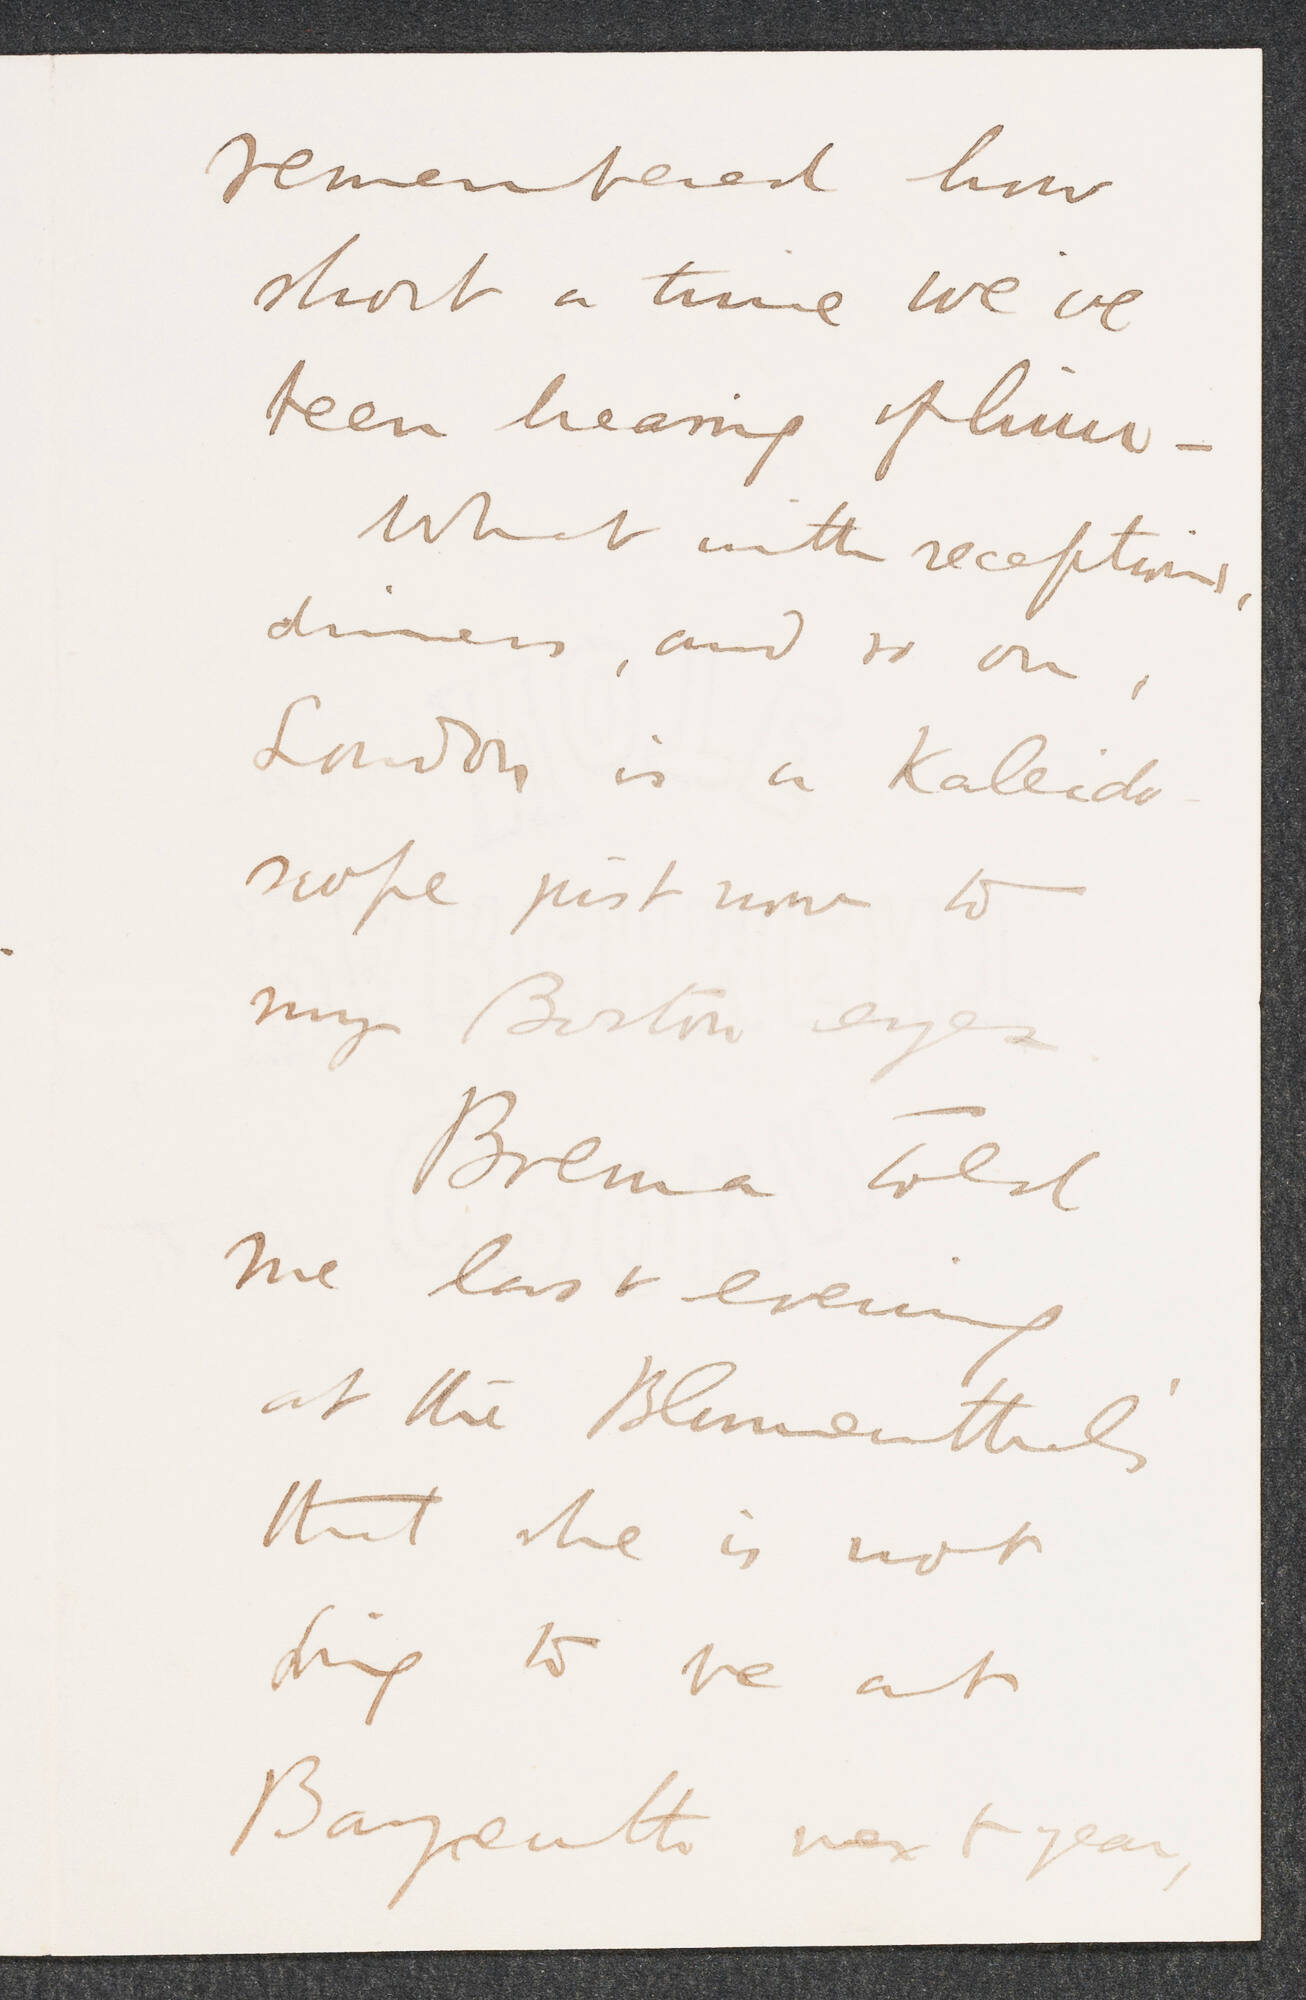 remembered how
short a time we've
been hearing of him –
What with receptions,
dinners, and so on,
London is a Kaleido-
scope just now to
my Boston eyes.
Brema told
me last evening
at the Blumenthals'
that she is not
going to be at
Bayreuth next year,